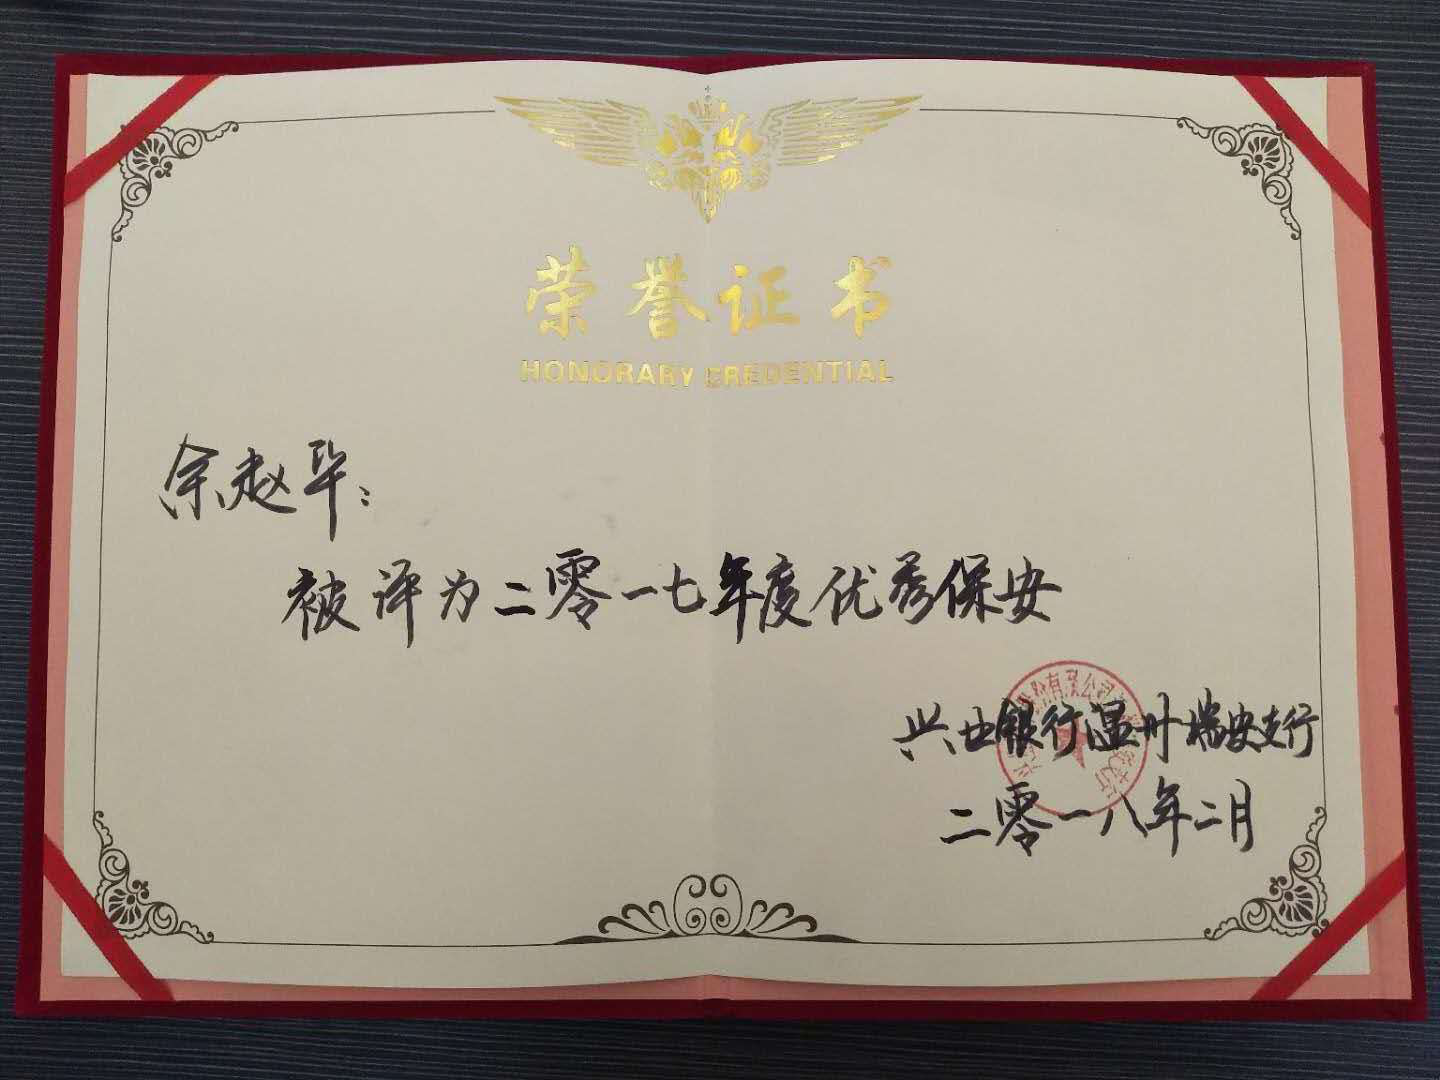 荣誉证书
HONORARY CREDENTIAL
余赵华：
被评为二零一七年度优秀保安
兴业银行温州瑞安支行
二零一八年二月
份有限公司